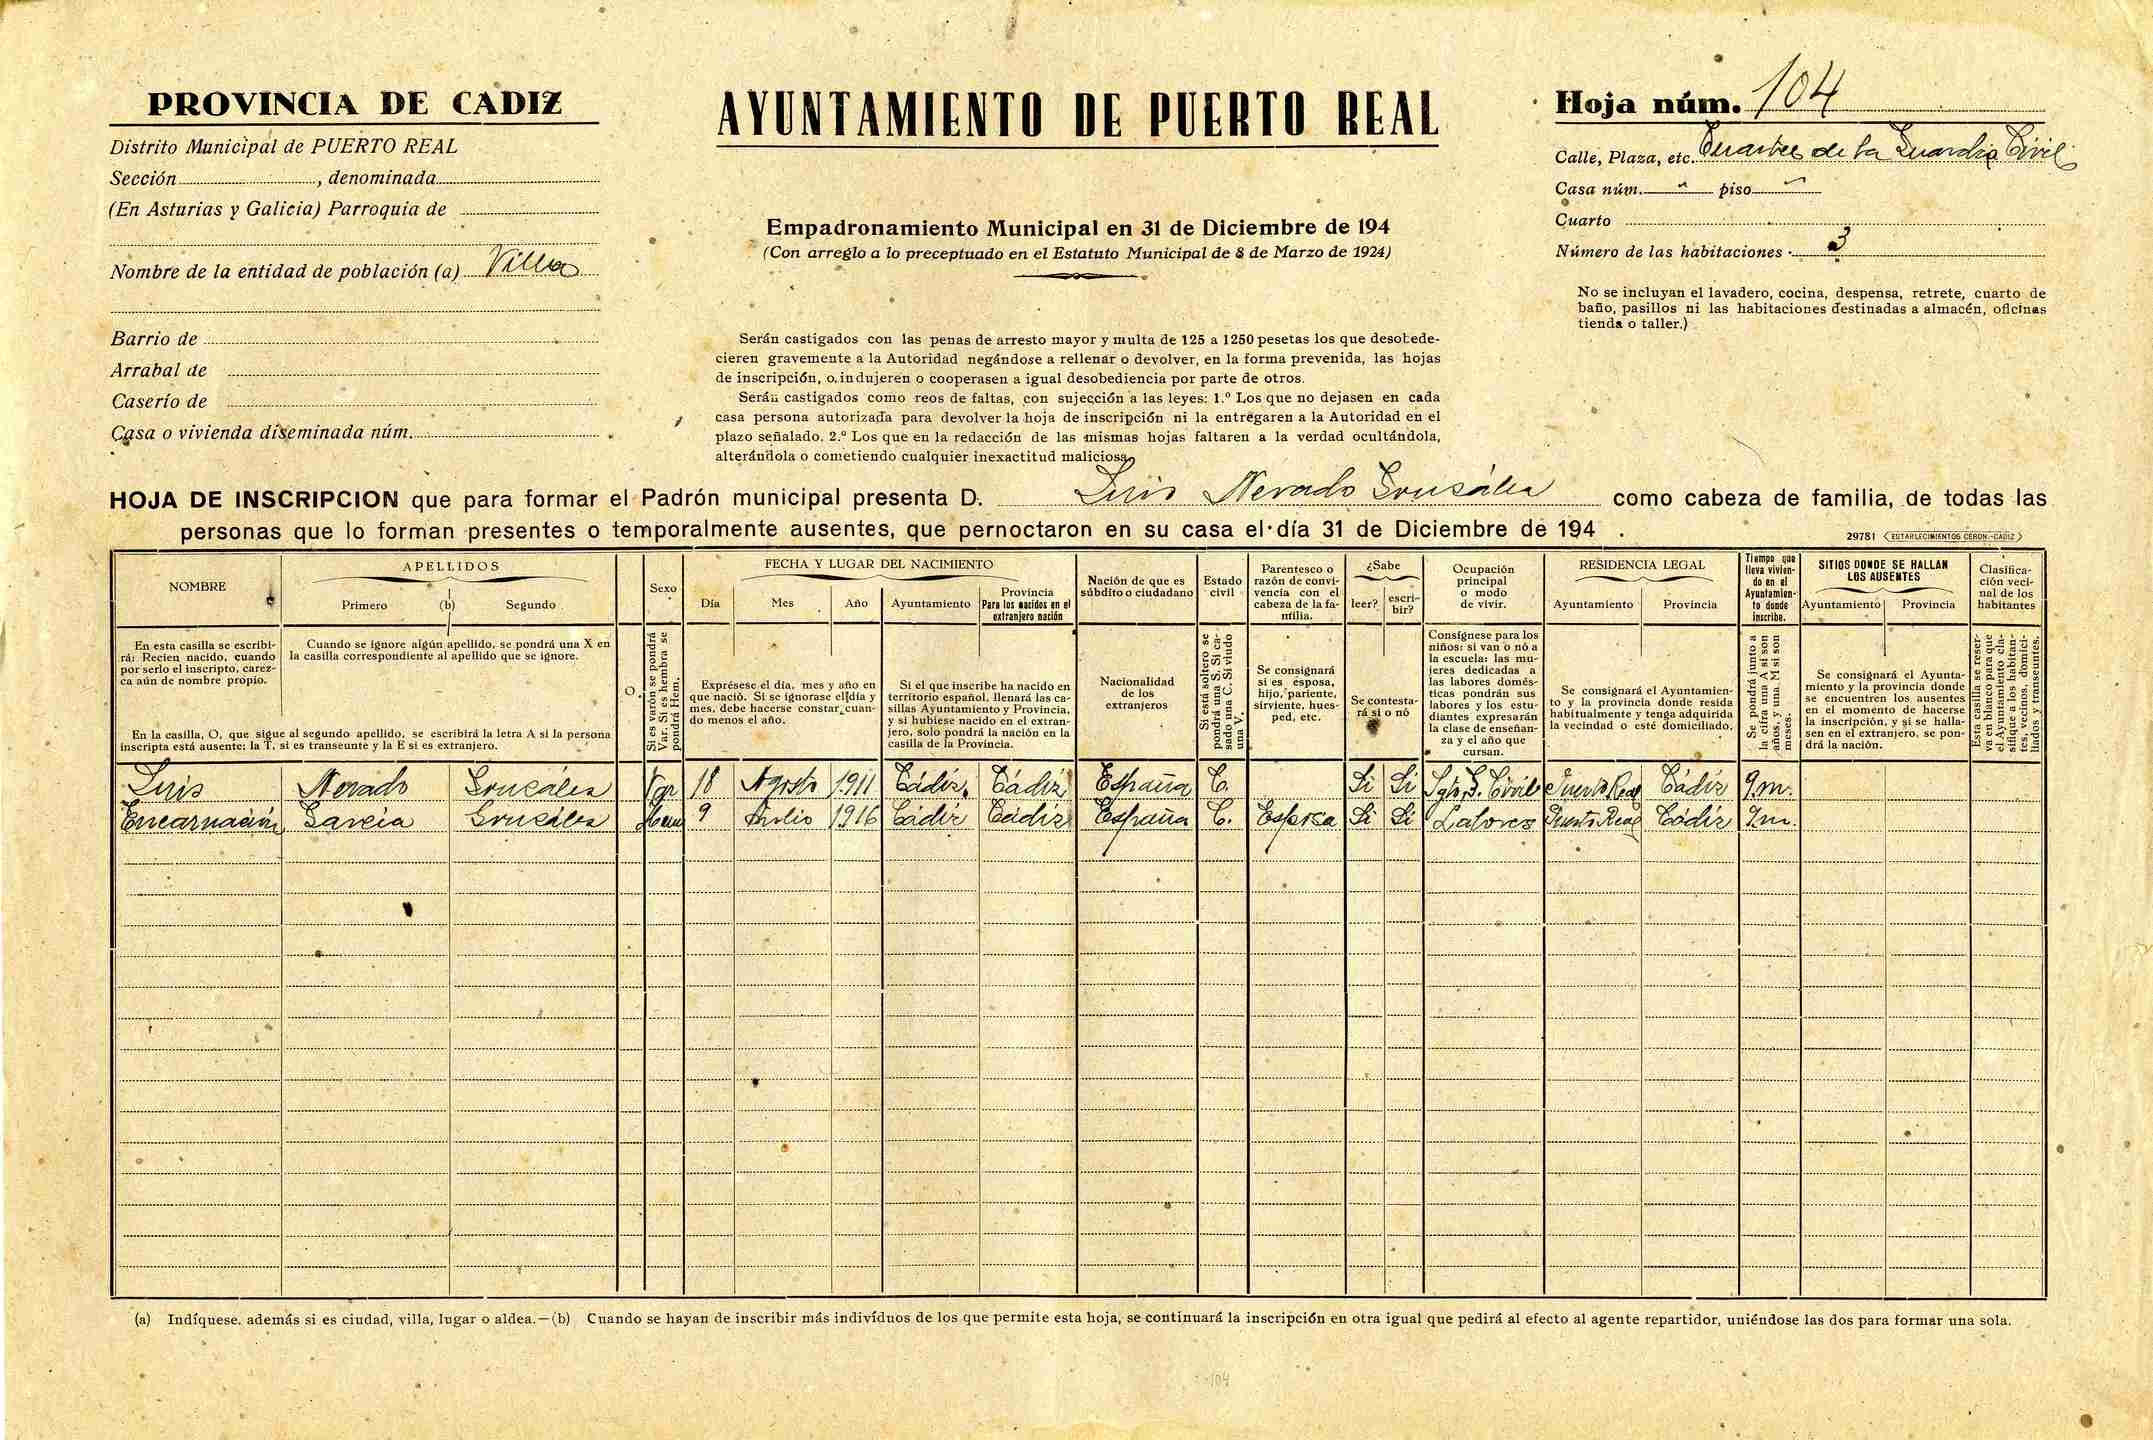 PROVINCIA DE CADIZ
Distrito Municipal de PUERTO REAL
Sección , denominada
(En Asturias y Galicia) Parroquia de
Nombre de la entidad de población (a) Villa
Barrio de
Arrabal de
Caserío de
Casa o vivienda diseminada núm.
AYUNTAMIENTO DE PUERTO REAL
Empadronamiento Municipal en 31 de Diciembre de 194
(Con arreglo a lo preceptuado en el Estatuto Municipal de 8 de Marzo de 1924)
Serán castigados con las penas de arresto mayor y multa de 125 a 1250 pesetas los que desobede-
cieren gravemente a la Autoridad negándose a rellenar o devolver, en la forma prevenida, las hojas
de inscripción, o indujeren o cooperasen a igual desobediencia por parte de otros.
Serán castigados como reos de faltas, con sujección a las leyes: 1.º Los que no dejasen en cada
casa persona autorizada para devolver la hoja de inscripción ni la entregaren a la Autoridad en el
plazo señalado. 2.º Los que en la redacción de las mismas hojas faltaren a la verdad ocultándola,
alterándola o cometiendo cualquier inexactitud maliciosa.
Hoja núm. 104
Calle, Plaza, etc. Cuartel de la Guardia Civil
Casa núm. " piso "
Cuarto
Número de las habitaciones 3
No se incluyan el lavadero, cocina, despensa, retrete, cuarto de
baño, pasillos ni las habitaciones destinadas a almacén, oficinas
tienda o taller.)
HOJA DE INSCRIPCION que para formar el Padrón municipal presenta D. Luis Nevado González como cabeza de familia, de todas las
personas que lo forman presentes o temporalmente ausentes, que pernoctaron en su casa el día 31 de Diciembre de 194 .
29781 ESTABLECIMIENTOS CERON.-CADIZ
NOMBRE
En esta casilla se escribi-
rá: Recien nacido, cuando
por serlo el inscripto, carez-
ca aún de nombre propio.
APELLIDOS
Primero (b) Segundo
Cuando se ignore algún apellido, se pondrá una X en
la casilla correspondiente al apellido que se ignore.
En la casilla, O, que sigue al segundo apellido, se escribirá la letra A si la persona
inscripta está ausente; la T, si es transeunte y la E si es extranjero.
O.
Sexo
Si es varón se pondrá
Var. Si es hembra se
pondrá Hem.
FECHA Y LUGAR DEL NACIMIENTO
Día Mes Año Ayuntamiento
Provincia
Para los nacidos en el
extranjero nación
Exprésese el día, mes y año en
que nació. Si se ignorase el día y
mes, debe hacerse constar, cuan-
do menos el año.
Si el que inscribe ha nacido en
territorio español, llenará las ca-
sillas Ayuntamiento y Provincia,
y si hubiese nacido en el extran-
jero, solo pondrá la nación en la
casilla de la Provincia.
Nación de que es
súbdito o ciudadano
Nacionalidad
de los
extranjeros
Estado
civil
Si está soltero se
pondrá una S. Si ca-
sado una C. Si viudo
una V.
Parentesco o
razón de convi-
vencia con el
cabeza de la fa-
milia.
Se consignará
si es esposa,
hijo, pariente,
sirviente, hues-
ped, etc.
¿Sabe
leer? escri-
bir?
Se contesta-
rá si o nó
Ocupación
principal
o modo
de vivir.
Consígnese para los
niños: si van o nó a
la escuela: las mu-
jeres dedicadas a
las labores domés-
ticas pondrán sus
labores y los estu-
diantes expresarán
la clase de enseñan-
za y el año que
cursan.
RESIDENCIA LEGAL
Ayuntamiento Provincia
Se consignará el Ayuntamien-
to y la provincia donde resida
habitualmente y tenga adquirida
la vecindad o esté domiciliado.
Tiempo que
lleva vivien-
do en el
Ayuntamien-
to donde
inscribe.
Se pondrá junto a
la cifra una A si son
años, y una M si son
meses.
SITIOS DONDE SE HALLAN
LOS AUSENTES
Ayuntamiento Provincia
Se consignará el Ayunta-
miento y la provincia donde
se encuentren los ausentes
en el momento de hacerse
la inscripción, y si se halla-
sen en el extranjero, se pon-
drá la nación.
Clasifica-
ción veci-
nal de los
habitantes
Esta casilla se reser-
va en blanco para que
el Ayuntamiento cla-
sifique a los habitan-
tes, vecinos, domici-
liados y transeuntes.
Luis Nevado González Var 18 Agosto 1911 Cádiz Cádiz España C. Si Si Sgto. G. Civil Puerto Real Cádiz 9 m.
Encarnación García González Hem 9 Julio 1916 Cádiz Cádiz España C. Esposa Si Si Labores Puerto Real Cádiz 9 m.
(a) Indíquese. además si es ciudad, villa, lugar o aldea.—(b) Cuando se hayan de inscribir más indivíduos de los que permite esta hoja, se continuará la inscripción en otra igual que pedirá al efecto al agente repartidor, uniéndose las dos para formar una sola.
104